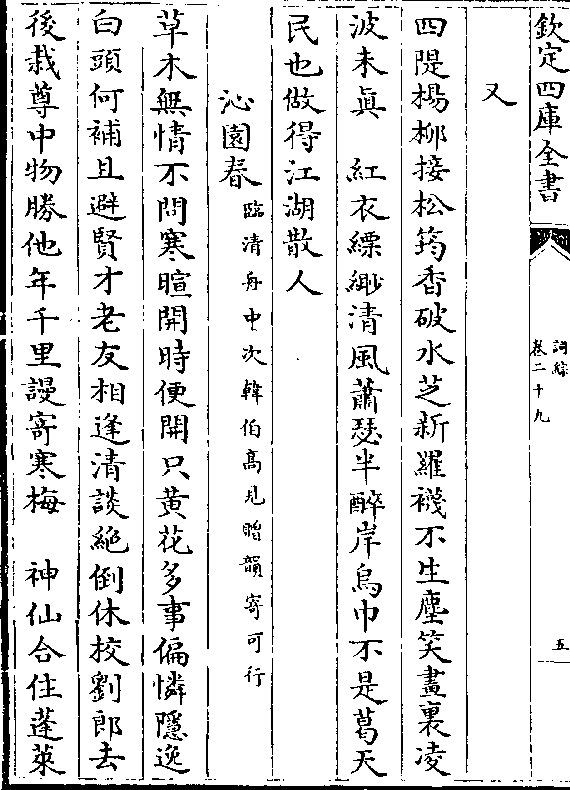 欽定四庫全書
詞綜
卷二十九
五
又
四隄楊柳接松筠香破水芝新羅襪不生塵笑畫裏凌
波未眞　紅衣縹緲清風蕭瑟半醉岸烏巾不是葛天
民也做得江湖散人
沁園春臨清舟中次韓伯高見贈韻寄可行
草木無情不問寒暄開時便開只黃花多事偏憐隱逸
白頭何補且避賢才老友相逢清談絕倒休校劉郎去
後栽尊中物勝他年千里謾寄寒梅　神仙合住蓬萊